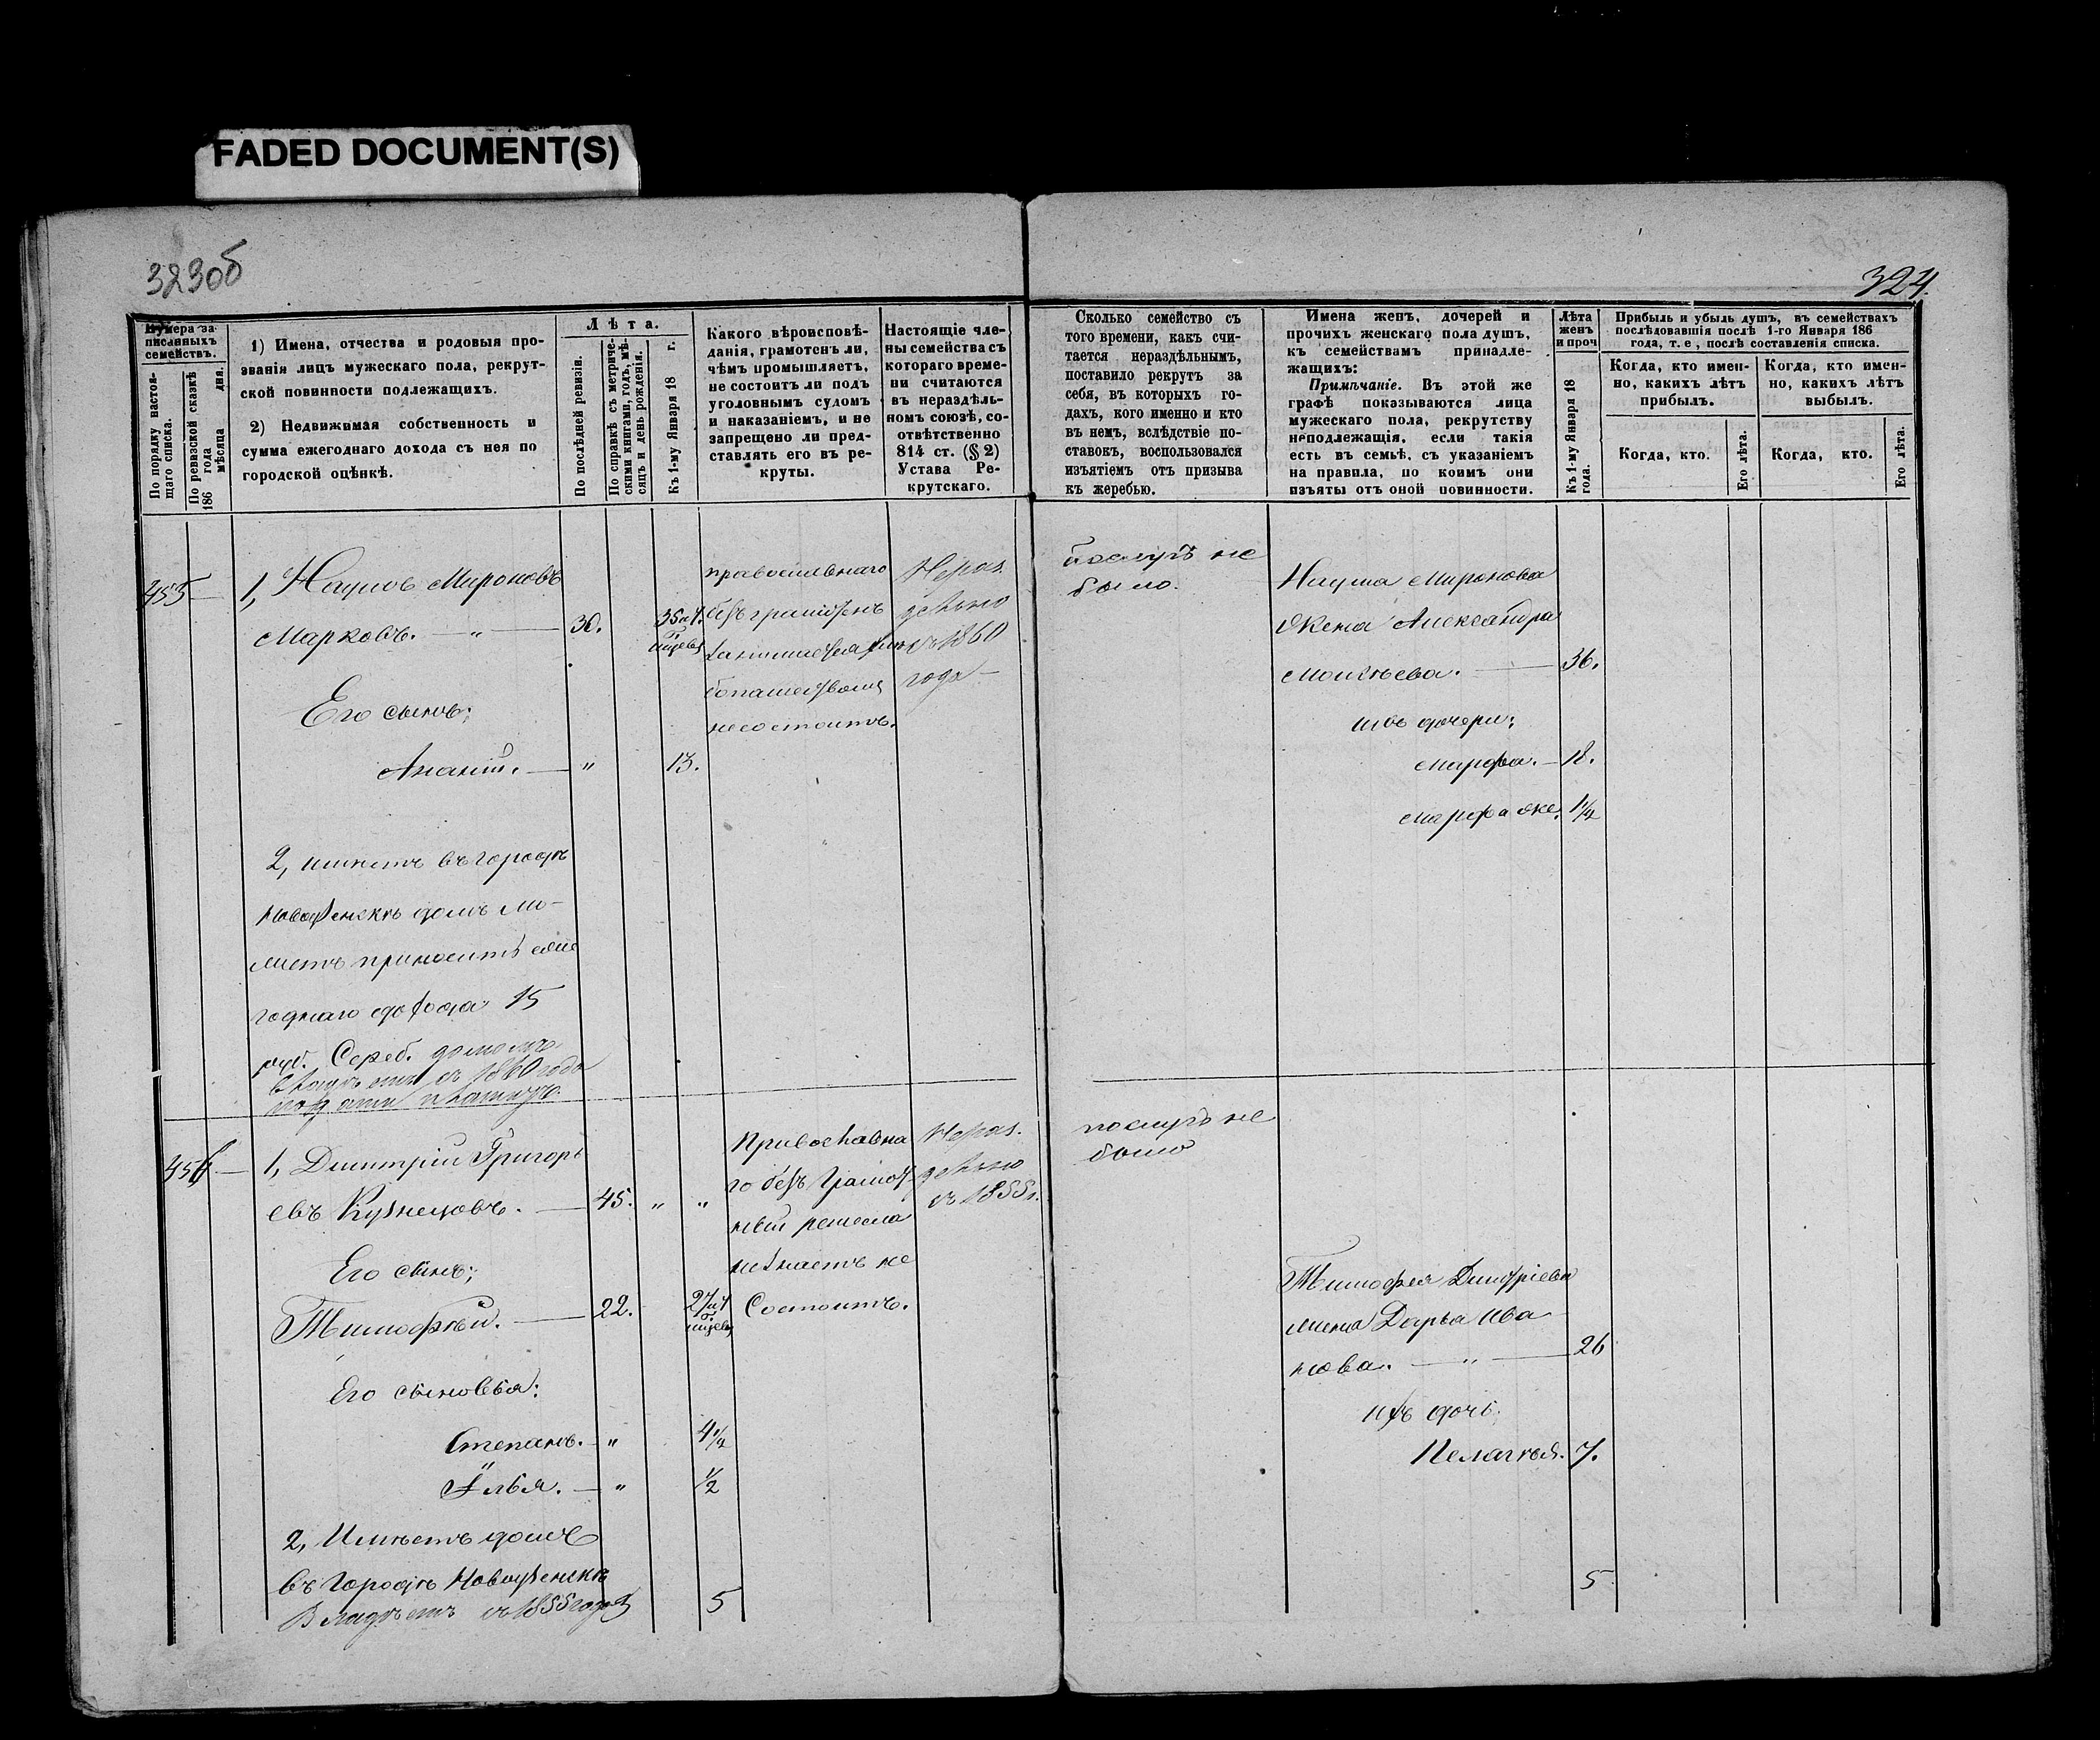 FADED DOCUMENT(S)
323об
324.
Нумера за-
писанныхъ
семействъ.
По порядку настоя-
щаго списка.
По ревизской сказкѣ
186 года мѣсяца дня.
1) Имена, отчества и родовыя про-
званія лицъ мужескаго пола, рекрут-
ской повинности подлежащихъ.
2) Недвижимая собственность и
сумма ежегоднаго дохода съ нея по
городской оцѣнкѣ.
Лѣта.
По послѣдней ревизіи.
По справкѣ съ метриче-
скими книгами, годъ, мѣ-
сяцъ и день рожденія.
Къ 1-му Января 18 г.
Какого вѣроисповѣ-
данія, грамотенъ ли,
чѣмъ промышляетъ,
не состоитъ ли подъ
уголовнымъ судомъ
и наказаніемъ, и не
запрещено ли пред-
ставлять его въ ре-
круты.
Настоящіе чле-
ны семейства съ
котораго време-
ни считаются
въ нераздѣль-
номъ союзѣ, со-
отвѣтственно
814 ст. (§ 2)
Устава Ре-
крутскаго.
Сколько семейство съ
того времени, какъ счи-
тается нераздѣльнымъ,
поставило рекрутъ за
себя, въ которыхъ го-
дахъ, кого именно и кто
въ немъ, вслѣдствіе по-
ставокъ, воспользовался
изъятіемъ отъ призыва
къ жеребью.
Имена женъ, дочерей и
прочихъ женскаго пола душъ,
къ семействамъ принадле-
жащихъ:
Примѣчаніе. Въ этой же
графѣ показываются лица
мужескаго пола, рекрутству
неподлежащія, если такія
есть въ семьѣ, съ указаніемъ
на правила, по коимъ они
изъяты отъ оной повинности.
Лѣта
женъ
и проч
Къ 1-му Января 18
года.
Прибыль и убыль душъ, въ семействахъ
послѣдовавшія послѣ 1-го Января 186
года, т. е, послѣ составленія списка.
Когда, кто имен-
но, какихъ лѣтъ
прибылъ.
Когда, кто имен-
но, какихъ лѣтъ
выбылъ.
Когда, кто.
Его лѣта.
Когда, кто.
Его лѣта.
455 —
1, Наумъ Мироновъ
Марковъ. — " — 30.
Его сынъ;
Ананій. — " 13.
2, имѣетъ въ городѣ
Новоузенскѣ домъ мо-
жетъ приносить еже
годнаго дохода 15
руб. Сереб. домомъ
владѣетъ съ 1860 года
подати платитъ.
православнаго
безъграмотенъ
занимается хле
бопашествомъ
несостоитъ.
Нераз.
дѣльно
съ 1860
года —
послугъ не
было.
Наума Миронова
Жена Александра
Моисѣева. — 36.
ихъ дочери;
Марфа. — 18.
Марфа же. 1 1/4
456 —
1, Димитрій Григорь
евъ Кузнецовъ. — 45. " "
Его сынъ;
Тимофѣй. — 22.
Его сыновья:
Степанъ. — " 4 1/4
Илья. — " 1/2
2, Имѣетъ домъ
въ Городѣ Новоузенскѣ
Владѣетъ съ 1855 года
5
Православна
го безъ Грамот
ный ремесла
незнаетъ не
Состоитъ.
Нераз.
дѣльно
съ 1855 г.
послугъ не
было
Тимофея Димитріева
жена Дарья Ива
нова. — " — 26
ихъ дочь
Пелагѣя. 7.
5